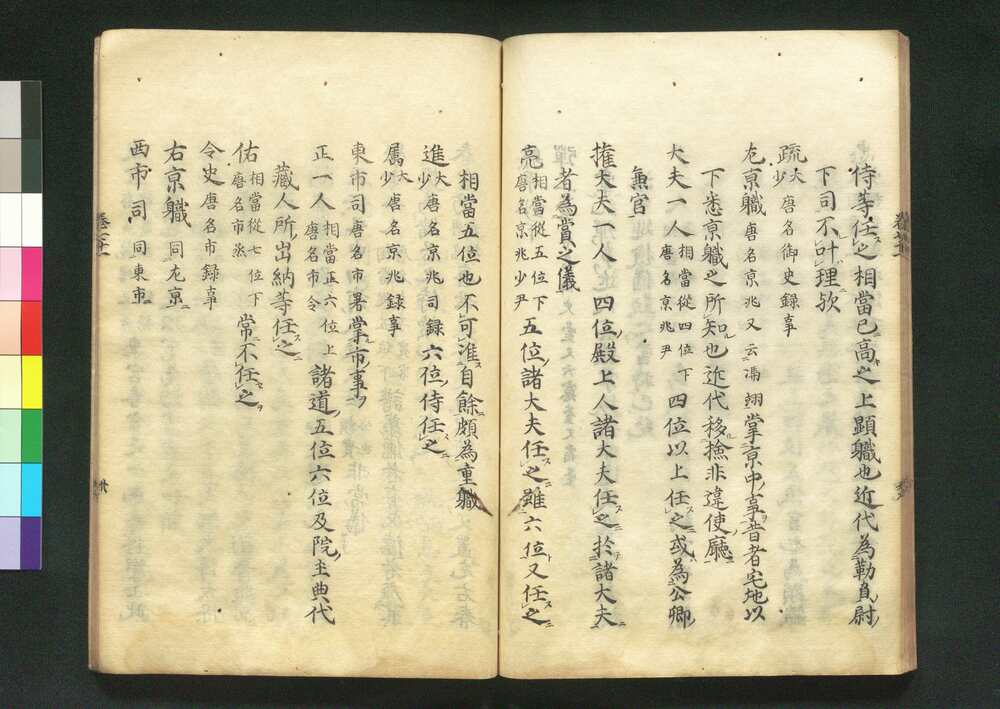 侍等任之相當已高之上顯職也近代為勒負尉
下司不叶理欤
疏大少唐名御史録事
左京職唐名京兆又云馮翊掌京中事昔者宅地以
下悉京職之所知也近代移撿非違使廳
大夫一人相當從四位下唐名京兆尹四位以上任之或為公卿
兼官
権大夫一人四位殿上人諸大夫任之於諸大夫
者為賞之儀
亮相當從五位下唐名京兆少尹五位諸大夫任之雖六位又任之
相當五位也不可准自餘頗為重職
進大少唐名京兆司録六位侍任之
属大少唐名京兆録事
東市司唐名市署掌市事
正一人相當正六位上唐名市令諸道五位六位及院主典代
蔵人所出納等任之
佑相當從七位下唐名市丞常不任之
令史唐名市録事
右京職同左京
西市司同東市